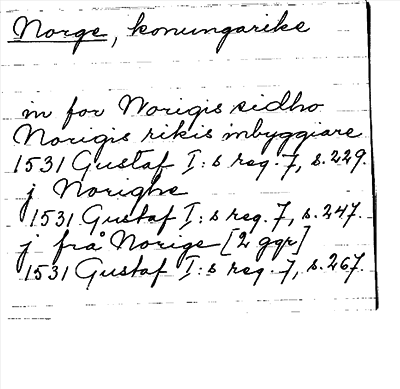 Norge, konungarike
in for Norigis sidho
Norigis rikis inbyggiare
1531 Gustaf I:s reg. 7, s. 229.
j Norighe
1531 Gustaf I:s reg. 7, s. 247.
j frå Norige [2 ggr]
1531 Gustaf I:s reg. 7, s. 267.